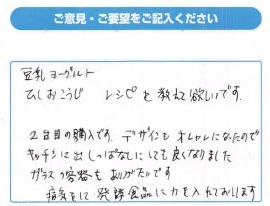 ご意見・ご要望をご記入ください
豆乳ヨーグルト
ひしおこうじ　レシピを教えて欲しいです。
2台目の購入です。デザインもオシャレになったので
キッチンに出しっぱなしにしても良くなりました
ガラスの容器もありがたいです
病気をして発酵食品に力を入れております